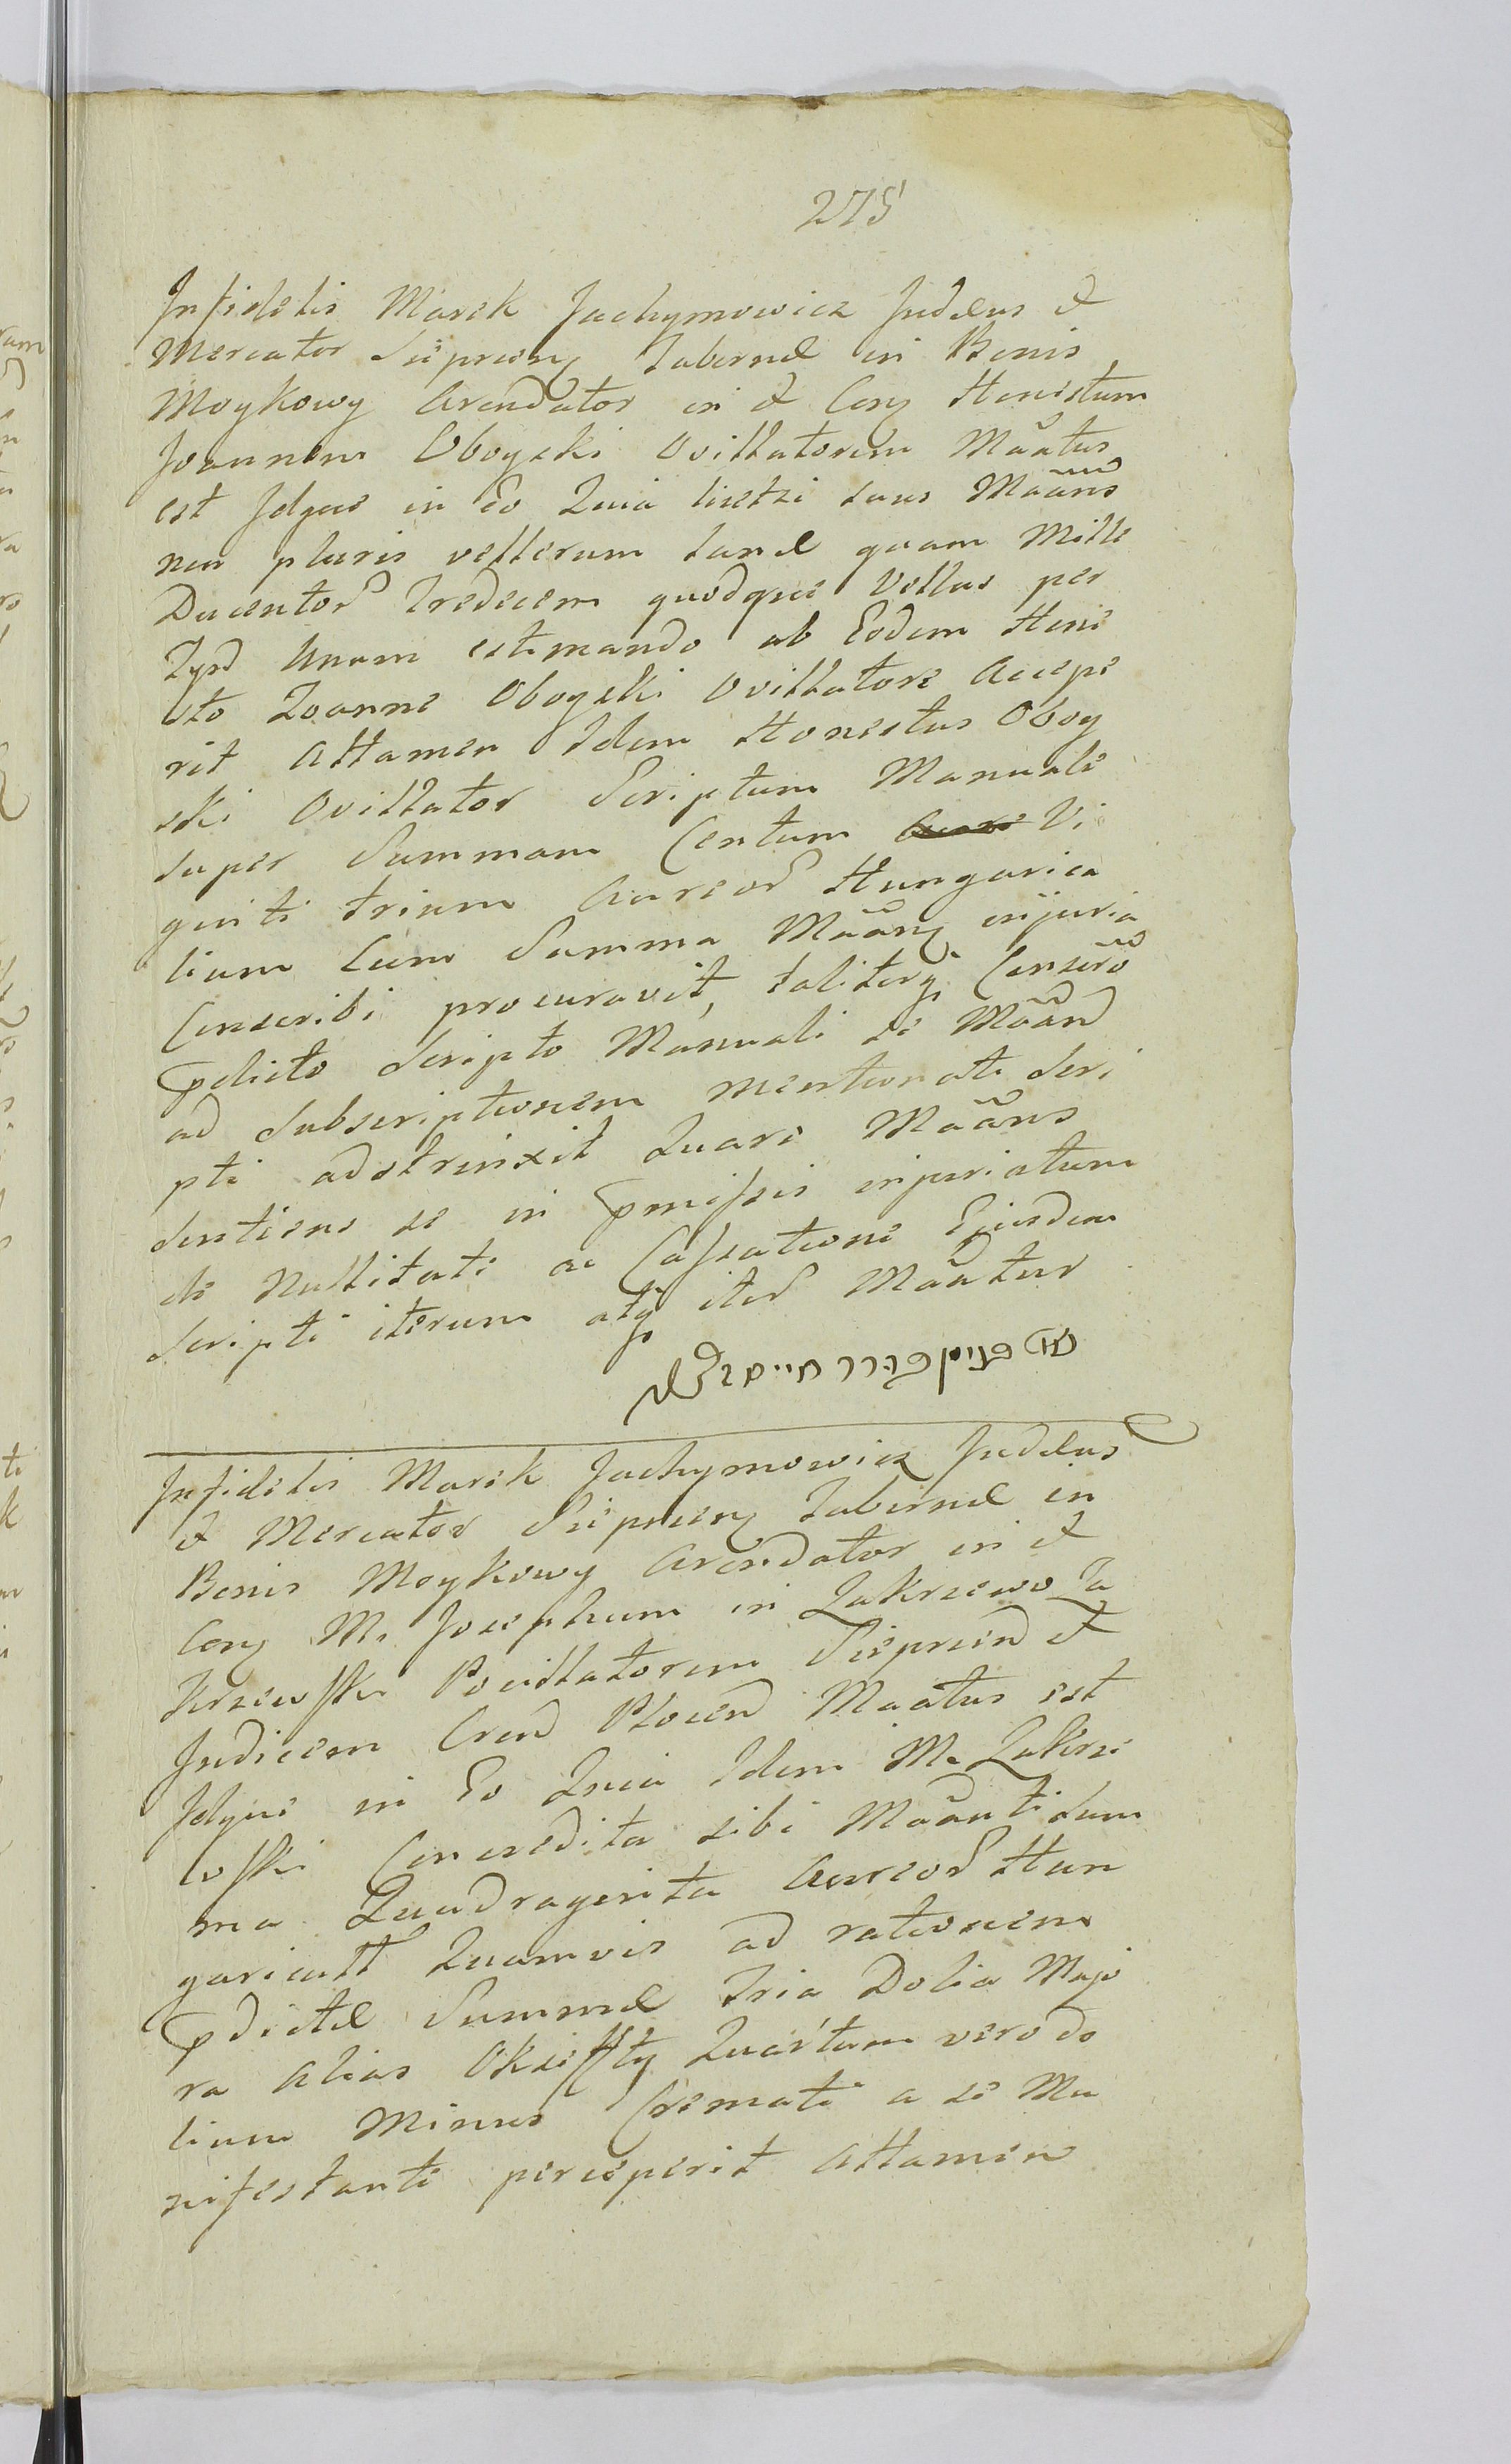 275
Infidelis Marek Jachymowicz Judæus et
Mercator Sieprcens Tabernæ in Bonis
Moykowy Arendator in et Con Honestum
Joannem Oboyski Ovillatorem Mãatus
est Idque in eo Quia licetsi suus Mãans
non pluris vellerum Lanæ quam Mille
Ducentor Tredecem quodque Vellus per
Tynf Unum estimando ab Eodem Hone
sto Ioanne Oboyski Ovillatore Accepe
rit Attamen Idem Honestus Oboy
ski Ovillator Scriptum Manuale
super Summam Centum Vi
ginti trium Aureor Hungarica
lium Cum Summa Mãan injuria
Conscribi procuravit, taliterq Conscro
pdicto Scripto Manuali se Mãan
ad Subscriptionem mentionati Scri
pti adstrinxit Quare Mãans
sentiens se in pmissis injuriatum
de Nullitate ac Cassatione Ejusdem
Scripti iterum atq iter Mãatur
Infidelis Marek Jachymowicz Judæus
et Mercator Sieprcen Tabernæ in
Bonis Moykowy Arendator in et
Con M. Josephum in Zakrzewo Za
krzewski Pocillatorem Sieprcen et
Judicem Cren Plocen Maatus est
Idque in Eo Quia Idem M. Zakrze
wski Concredita sibi Mãanti Sum
ma Quadraginta Aureor Hun
garicall Quamvis ad rationem
pdictæ Summæ Tria Dolia Majo
ra alias Okseffty Quartum vero do
lium Minus Cremati a se Ma
nifestante perceperit Attamen